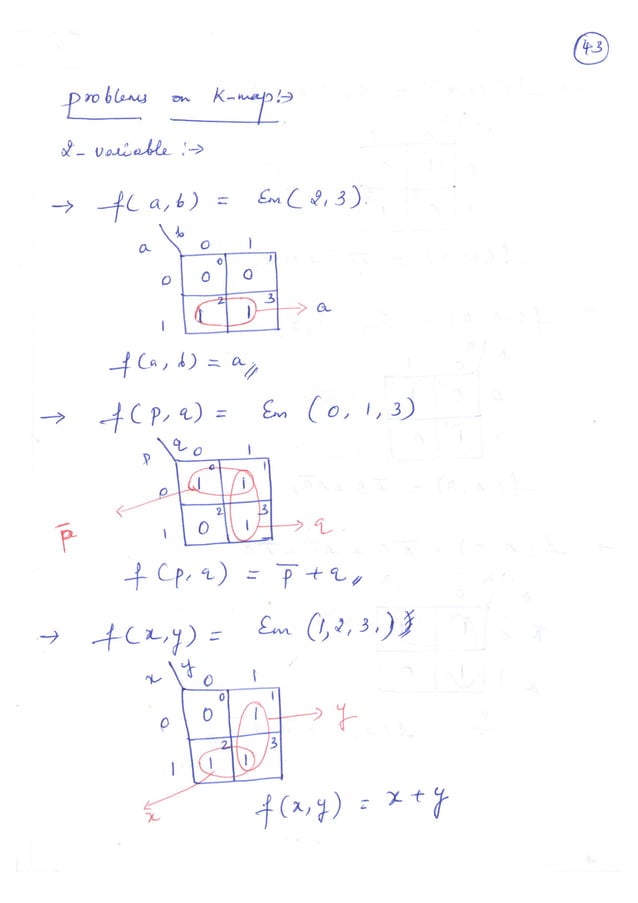 43
problems on K-map:→
2-variable :→
→ f(a,b) = Em(2,3).
a \ b 0 1
0 0 0 0 1
1 1 2 1 3 → a
f(a,b) = a//
→ f(p,q) = Em (0,1,3)
p \ q 0 1
0 1 0 1 1
p̅ 1 0 2 1 3 → q.
f(p,q) = p̅ + q//
→ f(x,y) = Em (1,2,3,)
x \ y 0 1
0 0 0 1 1 → y
1 1 2 1 3
x
f(x,y) = x + y